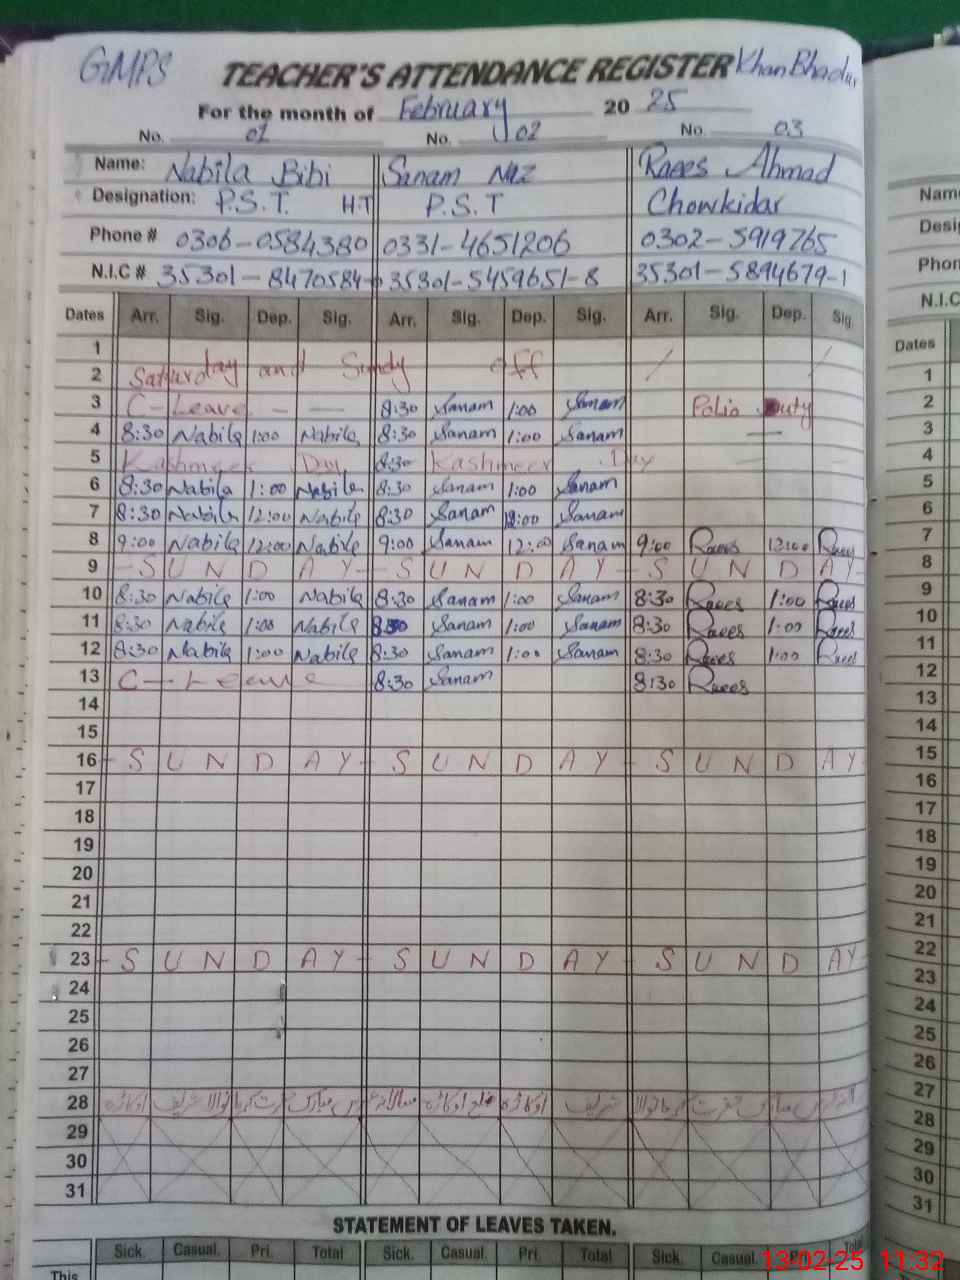 GMPS TEACHER'S ATTENDANCE REGISTER Khan Bhadur
For the month of February 20 25
No. 01 No. 02 No. 03
Name: Nabila Bibi Sanam Naz Raees Ahmad
Designation: P.S.T. H.T P.S.T Chowkidar
Phone # 0306-0584380 0331-4651206 0302-5919765
N.I.C # 35301-8470584- 35301-5459651-8 35301-5894679-1
Dates Arr. Sig. Dep. Sig. Arr. Sig. Dep. Sig. Arr. Sig. Dep. Sig
1
2 Saturday and Sundy off
3 C-Leave - - 8:30 Sanam 1:00 Sanam Polio Duty
4 8:30 Nabila 1:00 Nabila 8:30 Sanam 1:00 Sanam
5 Kashmeer Day 8:30 Kashmeer Day
6 8:30 Nabila 1:00 Nabila 8:30 Sanam 1:00 Sanam
7 8:30 Nabila 12:00 Nabila 8:30 Sanam 12:00 Sanam
8 9:00 Nabila 12:00 Nabila 9:00 Sanam 12:00 Sanam 9:00 Raees 12:00 Raees
9 - S U N D A Y - S U N D A Y - S U N D A Y -
10 8:30 Nabila 1:00 Nabila 8:30 Sanam 1:00 Sanam 8:30 Raees 1:00 Raees
11 8:30 Nabila 1:00 Nabila 8:30 Sanam 1:00 Sanam 8:30 Raees 1:00 Raees
12 8:30 Nabila 1:00 Nabila 8:30 Sanam 1:00 Sanam 8:30 Raees 1:00 Raees
13 C-Leave 8:30 Sanam 8:30 Raees
14
15
16 - S U N D A Y - S U N D A Y - S U N D A Y
17
18
19
20
21
22
23 - S U N D A Y - S U N D A Y - S U N D A Y
24
25
26
27
28
29
30
31
STATEMENT OF LEAVES TAKEN.
Sick. Casual. Pri. Total Sick. Casual. Pri. Total Sick. Casual. Total
This
Name
Desig
Phon
N.I.C
Dates
1
2
3
4
5
6
7
8
9
10
11
12
13
14
15
16
17
18
19
20
21
22
23
24
25
26
27
28
29
30
31
13-02-25 11:32